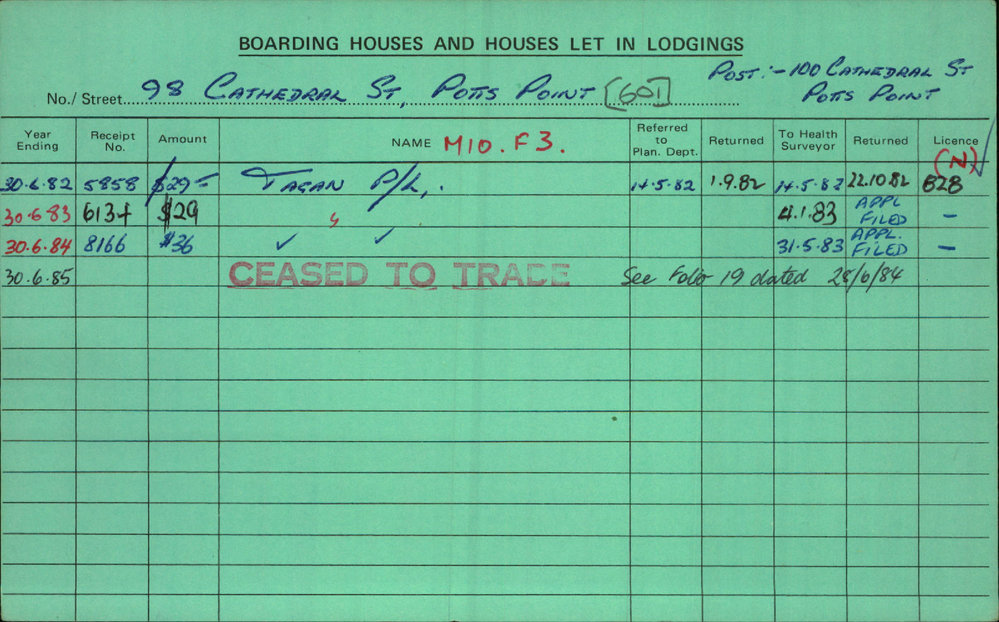 BOARDING HOUSES AND HOUSES LET IN LODGINGS
Post:- 100 Cathedral St
Potts Point
No./Street 98 Cathedral St, Potts Point [601]
Year Ending Receipt No. Amount NAME M10. F3. Referred to Plan. Dept. Returned To Health Surveyor Returned Licence (N)
30.6.82 5858 $29- Tagan P/L. 14.5.82 1.9.82 14.5.82 22.10.82 B28
30.6.83 6134 $29 " 4.1.83 APPL FILED -
30.6.84 8166 $36 ✓ ✓ 31.5.83 APPL. FILED -
30.6.85 CEASED TO TRADE See Folio 19 dated 28/6/84